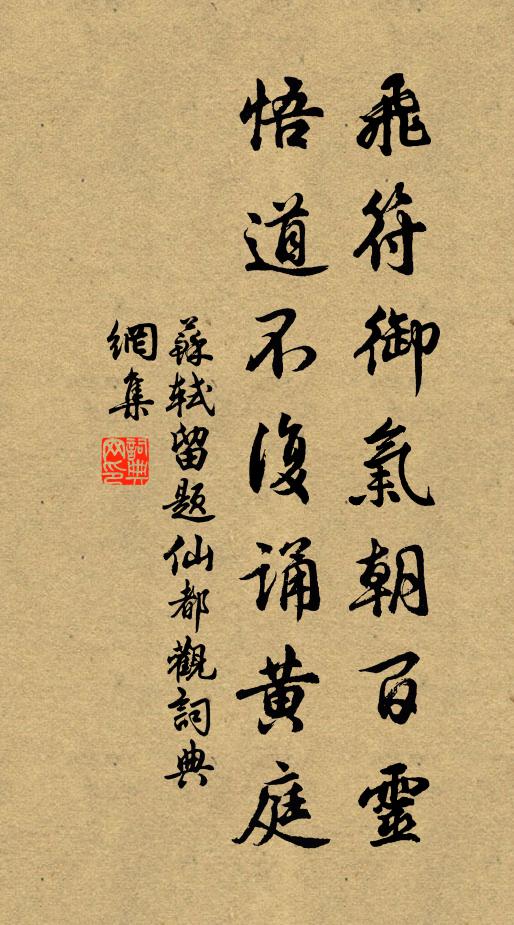 飛符御氣朝百靈
悟道不復誦黄庭
蘇軾留題仙都觀詞典
網集
詞典
网印